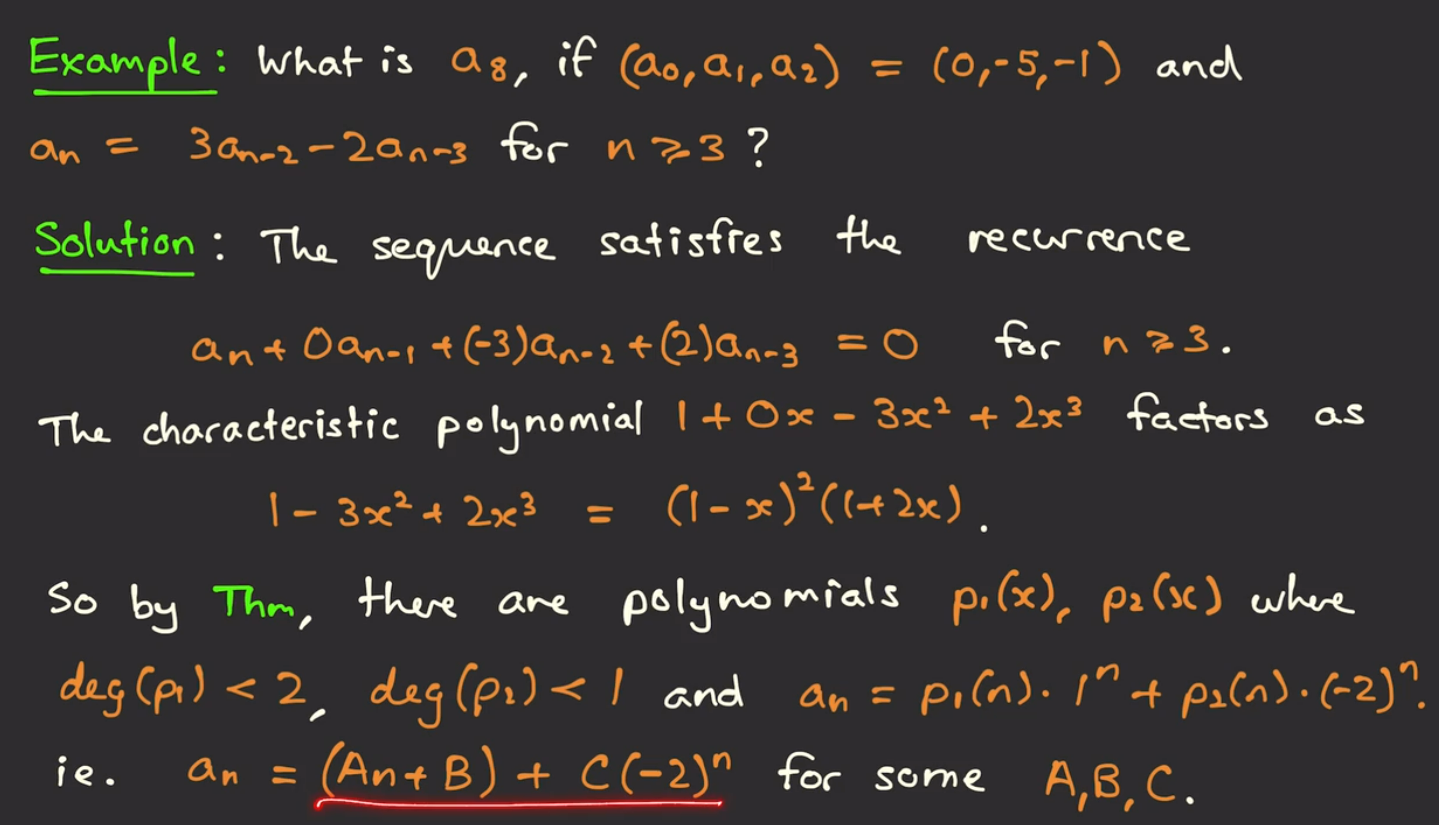 Example: What is a₈, if (a₀,a₁,a₂) = (0,-5,-1) and
aₙ = 3aₙ₋₂ - 2aₙ₋₃ for n ≥ 3 ?
Solution: The sequence satisfies the recurrence
aₙ + 0aₙ₋₁ + (-3)aₙ₋₂ + (2)aₙ₋₃ = 0 for n ≥ 3.
The characteristic polynomial 1 + 0x - 3x² + 2x³ factors as
1 - 3x² + 2x³ = (1-x)²(1+2x).
So by Thm, there are polynomials p₁(x), p₂(x) where
deg(p₁) < 2, deg(p₂) < 1 and aₙ = p₁(n)·1ⁿ + p₂(n)·(-2)ⁿ.
ie. aₙ = (An + B) + C(-2)ⁿ for some A,B,C.